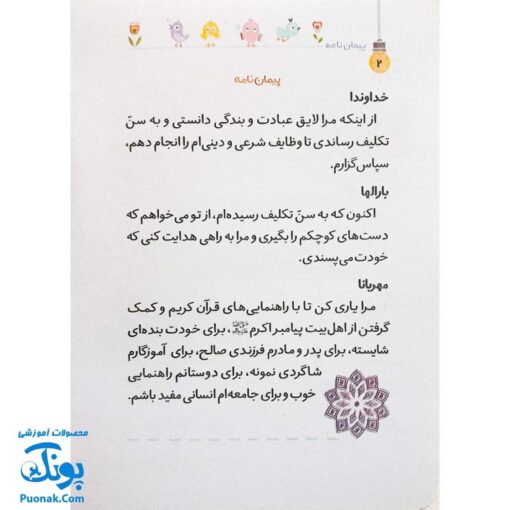 پیمان‌نامه
۲
پیمان‌نامه
خداوندا
از اینکه مرا لایق عبادت و بندگی دانستی و به سنّ
تکلیف رساندی تا وظایف شرعی و دینی‌ام را انجام دهم،
سپاس‌گزارم.
بارالها
اکنون که به سنّ تکلیف رسیده‌ام، از تو می‌خواهم که
دست‌های کوچکم را بگیری و مرا به راهی هدایت کنی که
خودت می‌پسندی.
مهربانا
مرا یاری کن تا با راهنمایی‌های قرآن کریم و کمک
گرفتن از اهل‌بیت پیامبر اکرم، برای خودت بنده‌ای
شایسته، برای پدر و مادرم فرزندی صالح، برای آموزگارم
شاگردی نمونه، برای دوستانم راهنمایی
خوب و برای جامعه‌ام انسانی مفید باشم.
محصولات آموزشی
پونک
Puonak.Com